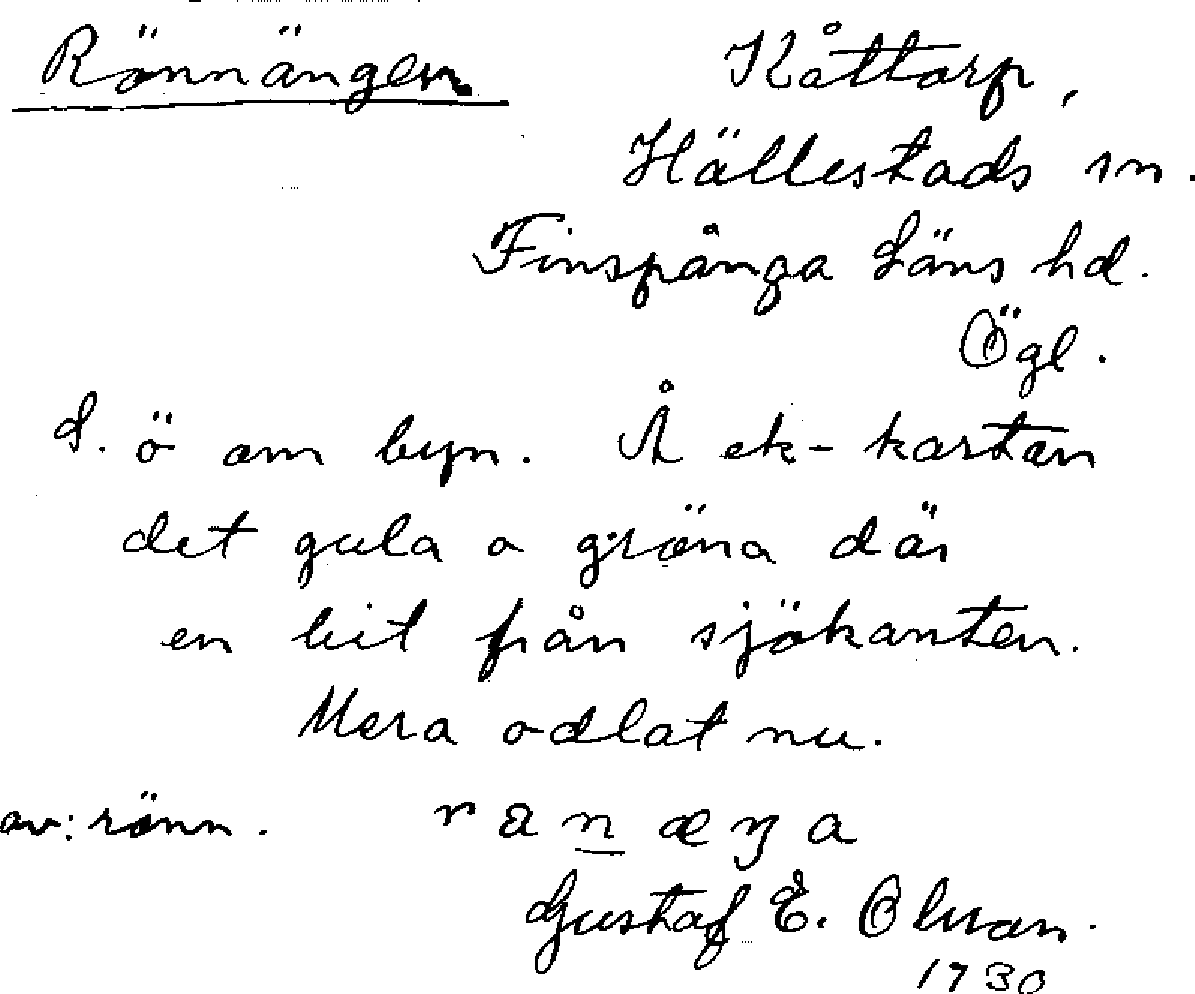 Rönnängen
Kåttorp,
Hällestads sn.
Finspånga Läns hd.
Ögl.
S. ö om byn. Å ek-kartan
det gula o gröna där
en bit från sjökanten.
Mera odlat nu.
av: rönn. ranæŋa
Gustaf E. Olsson.
1930